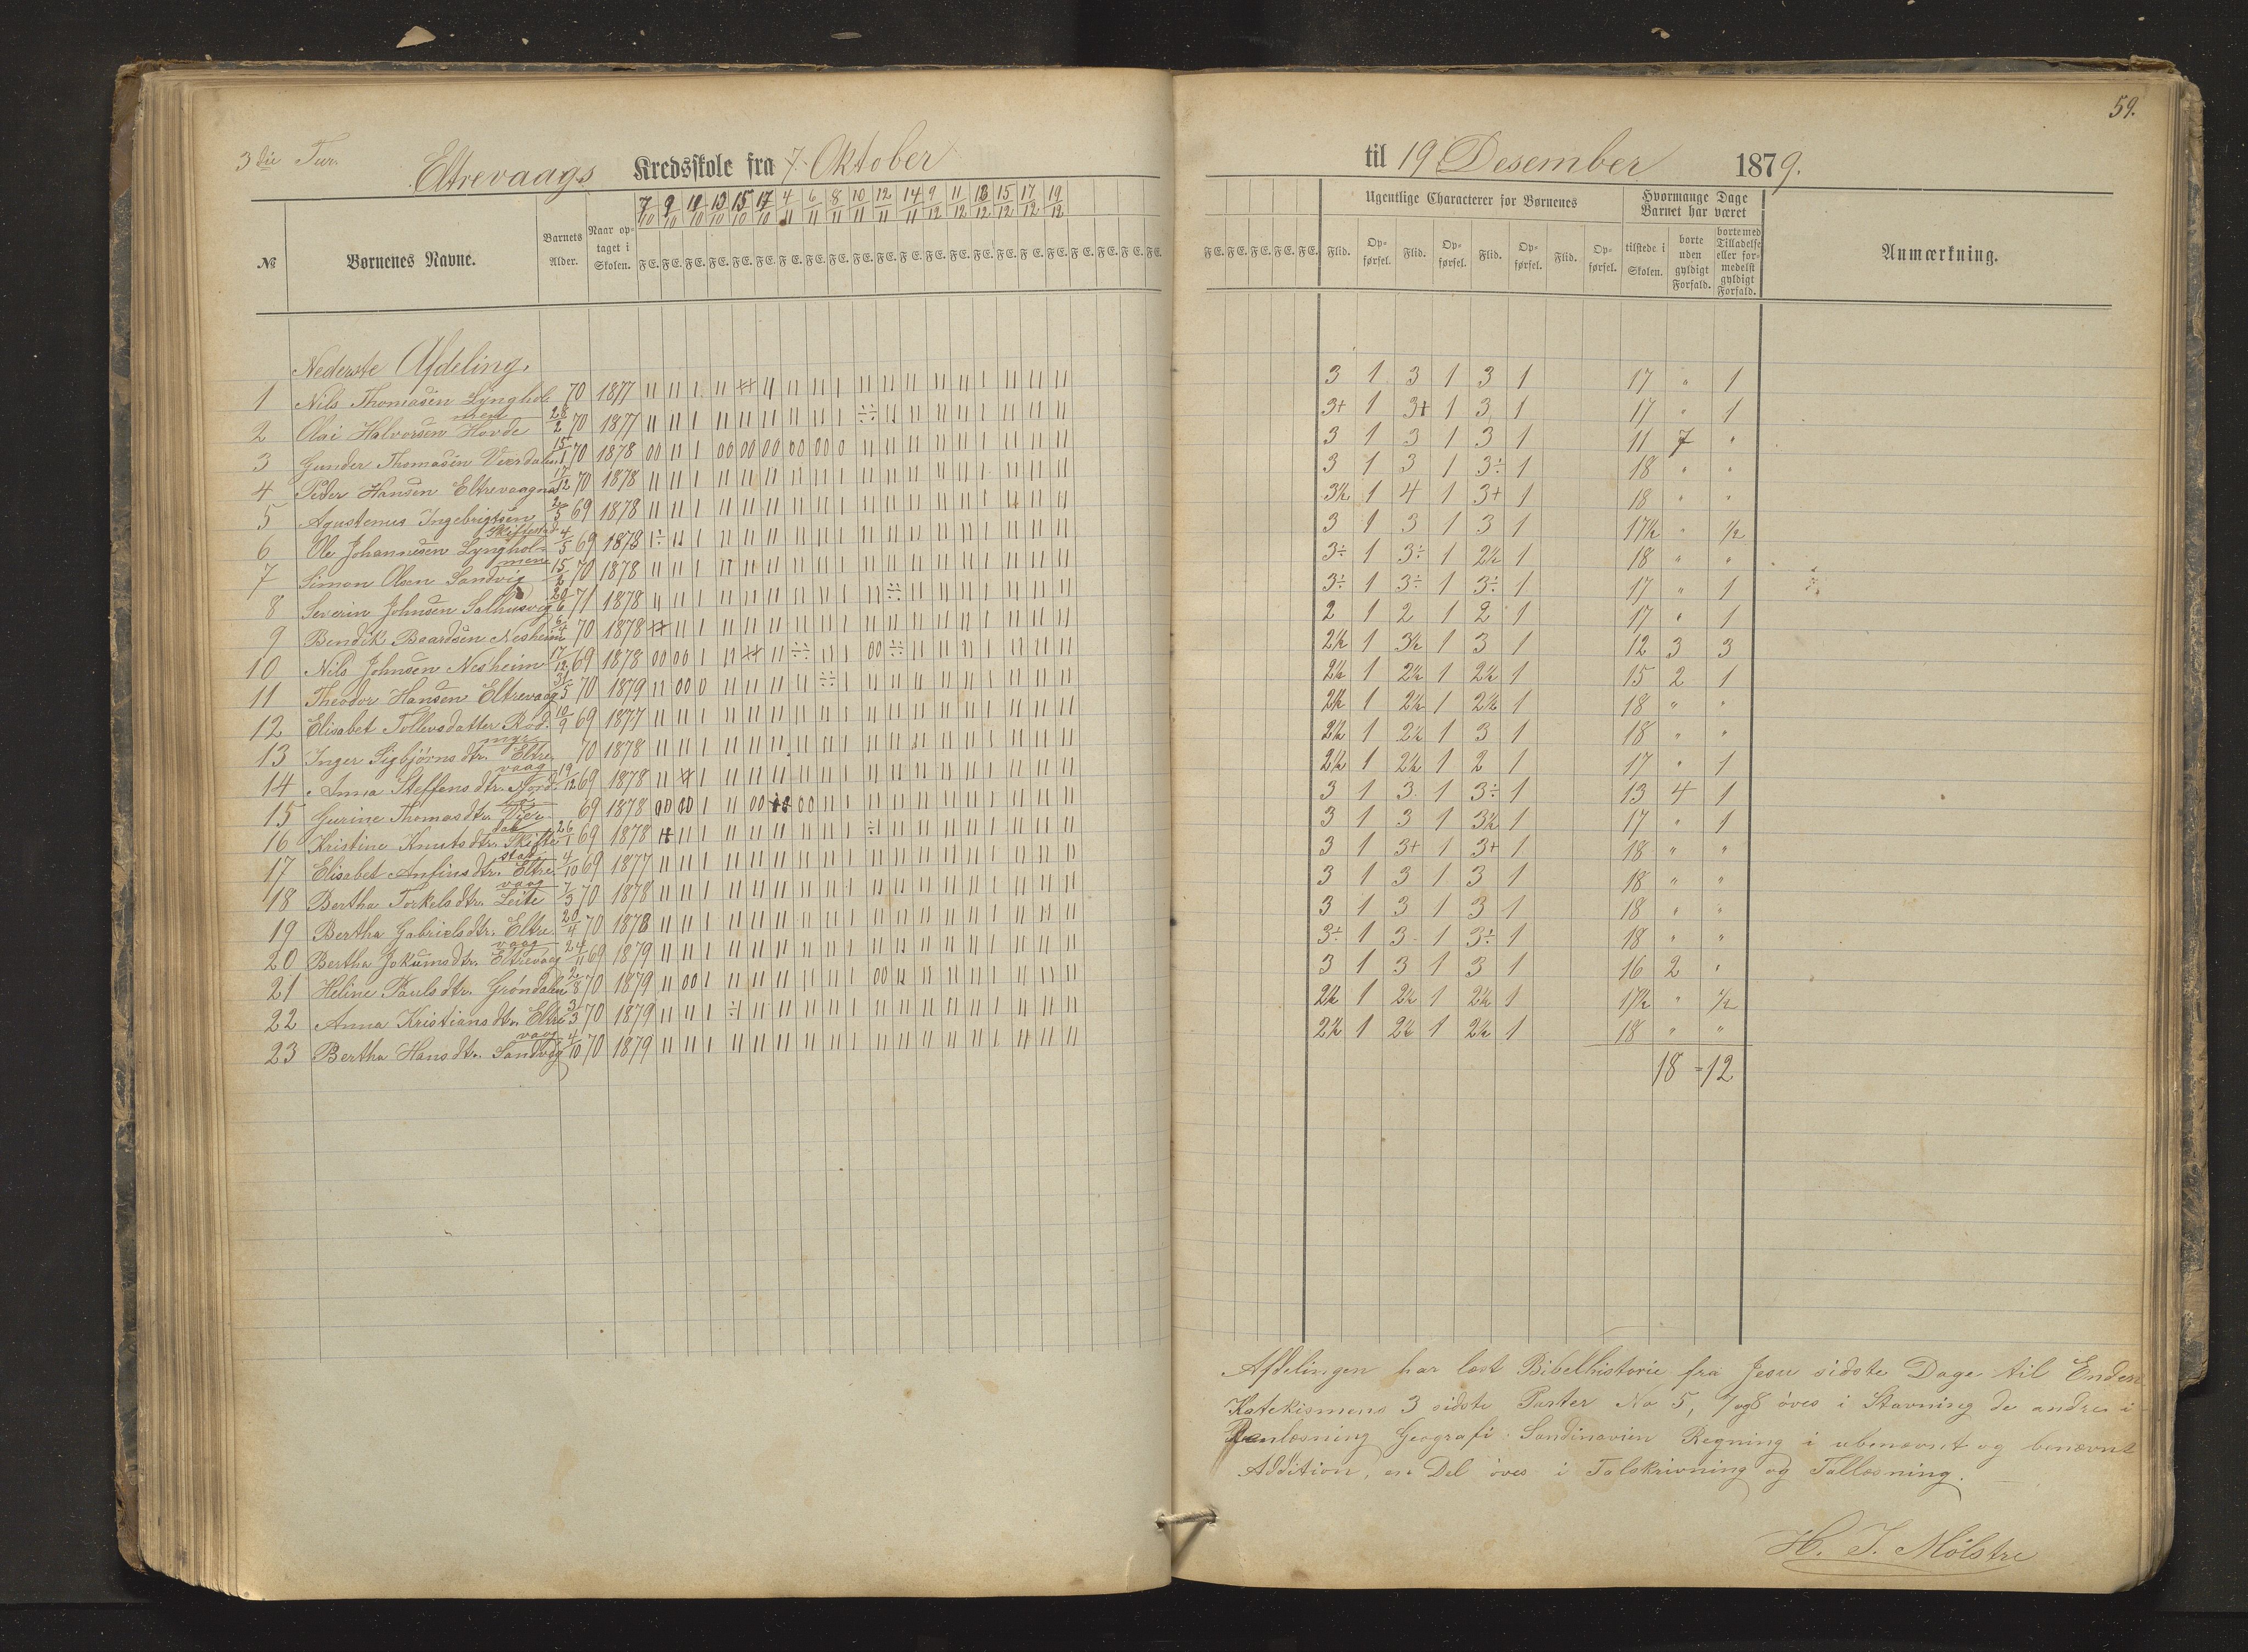 59.
3die Tur.
Eltrevaags Kredsskole fra 7. Oktober til 19 Desember 1879.
7/10 9/10 11/10 13/10 15/10 17/10 4/11 6/11 8/11 10/11 12/11 14/11 9/12 11/12 13/12 15/12 17/12 19/12
№ Børnenes Navne. Barnets Alder. Naar optaget i Skolen. F E. Ugentlige Characterer for Børnenes Flid. Opførsel. Flid. Opførsel. Flid. Opførsel. Flid. Opførsel. Hvormange Dage Barnet har været tilstede i Skolen. borte uden gyldigt Forfald. borte med Tilladelse eller formedelst gyldigt Forfald. Anmærkning.
Nederste Afdeling.
1 Nils Thomasen Lyngholmen 70 1877 3 1 3 1 3 1 17 " 1
2 Olai Halvorsen Hovde 28/2 70 1877 3+ 1 3+ 1 3 1 17 " 1
3 Gunder Thomasen Vierdalen 15/1 70 1878 3 1 3 1 3 1 11 7 "
4 Peder Hansen Eltrevaagnes 17/12 70 1878 3 1 3 1 3÷ 1 18 " "
5 Agustenus Ingebrigtsen Skiftestad 2/5 69 1878 3½ 1 4 1 3+ 1 18 " "
6 Ole Johannesen Lyngholmen 4/5 69 1878 3 1 3 1 3 1 17½ " ½
7 Simon Olsen Sandvig 15/2 70 1878 3÷ 1 3÷ 1 2½ 1 18 " "
8 Severin Johnsen Salhusvig 20/6 71 1878 3÷ 1 3÷ 1 3÷ 1 17 " 1
9 Bendik Baardsen Nesheim 6/4 70 1878 2 1 2 1 2 1 17 " 1
10 Nils Johnsen Nesheim 17/12 69 1878 2½ 1 3½ 1 3 1 12 3 3
11 Theodor Hansen Eltrevaag 31/5 70 1879 2½ 1 2½ 1 2½ 1 15 2 1
12 Elisabet Tollevsdatter Rød 10/9 69 1877 2½ 1 2½ 1 2½ 1 18 " "
13 Inger Sigbjörnsdtr. Eltrevaag 70 1878 2½ 1 2½ 1 3 1 18 " "
14 Anna Steffensdtr. Nord 19/12 69 1878 2½ 1 2½ 1 2 1 17 " 1
15 Gurine Thomasdtr. Vierdal 69 1878 3 1 3 1 3÷ 1 13 4 1
16 Kristine Knutsdtr. Skiftestad 26/1 69 1878 3 1 3 1 3½ 1 17 " 1
17 Elisabet Anfinsdtr. Eltrevaag 4/10 69 1877 3 1 3+ 1 3+ 1 18 " "
18 Bertha Torkelsdtr. Leite 7/3 70 1878 3 1 3 1 3 1 18 " "
19 Bertha Gabrielsdtr. Eltrevaag 20/4 70 1878 3 1 3 1 3 1 18 " "
20 Bertha Jokumsdtr. Eltrevaag 24/11 69 1879 3÷ 1 3 1 3÷ 1 18 " "
21 Heline Paulsdtr. Gröndalen 2/8 70 1879 3 1 3 1 3 1 16 2 "
22 Anna Kristiansdtr. Eltrevaag 3/3 70 1879 2½ 1 2½ 1 2½ 1 17½ " ½
23 Bertha Hansdtr. Sandvag 4/10 70 1879 2½ 1 2½ 1 2½ 1 18 " "
18 = 12
Afdelingen har læst Bibelhistorie fra Jesu sidste Dage til Enden
Katekismens 3 sidste Parter No 5, 7 og 8 öves i Stavning de andre i
Renlæsning Geografi: Sandinavien Regning i ubenævnt og benævnt
Addition, en Del öves i Talskrivning og Tallæsning.
H. J. Mölstre